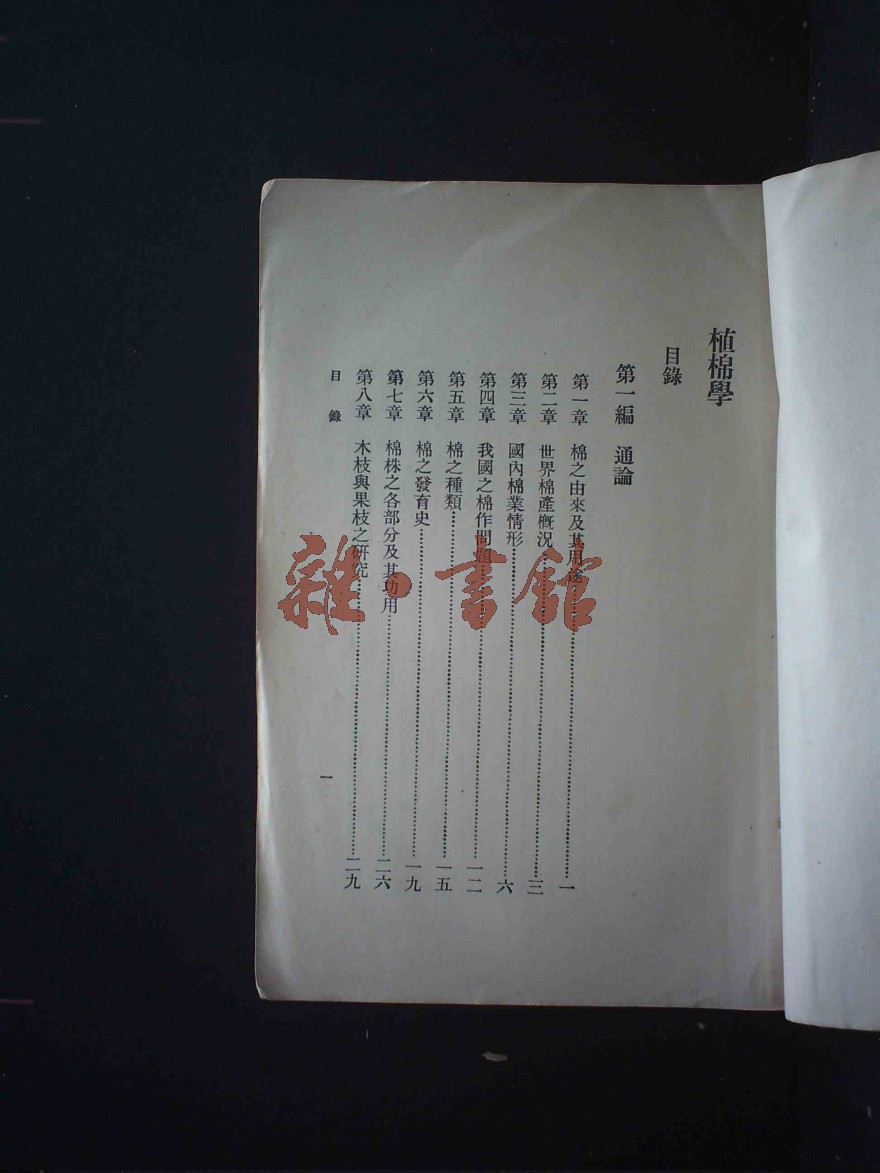 植棉學
目錄
第一編 通論
第一章 棉之由來及其用途……一
第二章 世界棉產概況……三
第三章 國內棉業情形……六
第四章 我國之棉作問題……一二
第五章 棉之種類……一五
第六章 棉之發育史……一九
第七章 棉株之各部分及其功用……二六
第八章 木枝與果枝之研究……二九
目錄
一
雜·書館